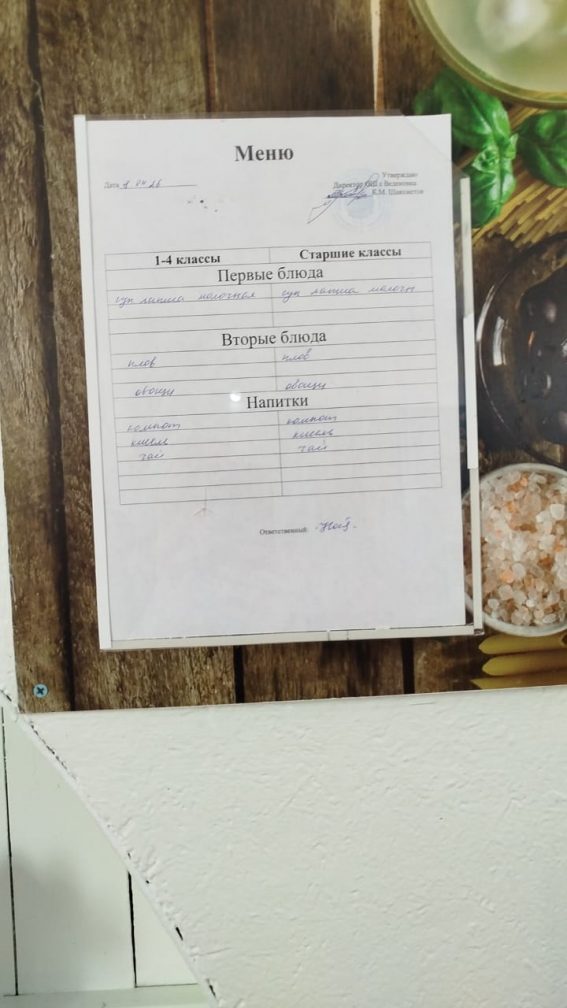 Меню
Утверждаю
Дата 9.04.26
Директор ОШ с Веденовка
К.М. Шаяхметов
1-4 классы Старшие классы
Первые блюда
суп лапша молочная суп лапша молочн
Вторые блюда
плов плов
овощи овощи
Напитки
компот компот
кисель кисель
чай чай
Ответственный: